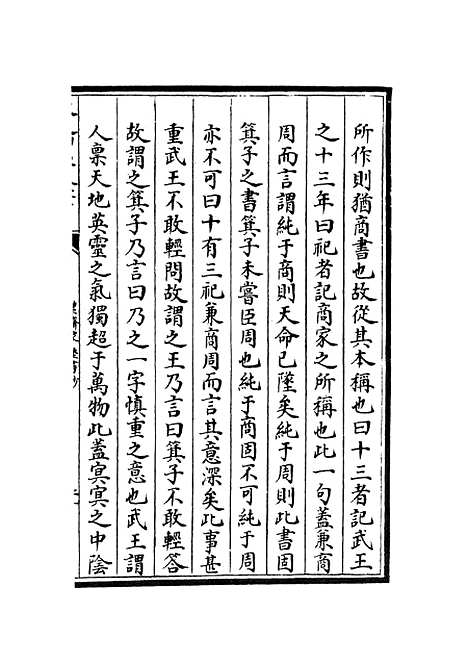 所作則猶商書也故從其本稱也曰十三者記武王
之十三年曰祀者記商家之所稱也此一句蓋兼商
周而言謂純于商則天命已墜矣純于周則此書固
箕子之書箕子未嘗臣周也純于商固不可純于周
亦不可曰十有三祀兼商周而言其意深矣此事甚
重武王不敢輕問故謂之王乃言曰箕子不敢輕答
故謂之箕子乃言曰乃之一字慎重之意也武王謂
人稟天地英靈之氣獨超于萬物此蓋冥冥之中陰